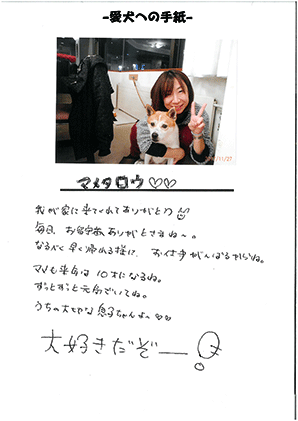 -愛犬への手紙-
11/27
マメタロウ♡♡
我が家に来てくれてありがとう
毎日、お留守番ありがとさまね〜。
なるべく早く帰れる様に、お仕事がんばるからね。
マメも来年は10才になるね。
ずっとずっと元気でいてね。
うちの大切な息子ちゃんよ〜♡♡
大好きだぞ――!